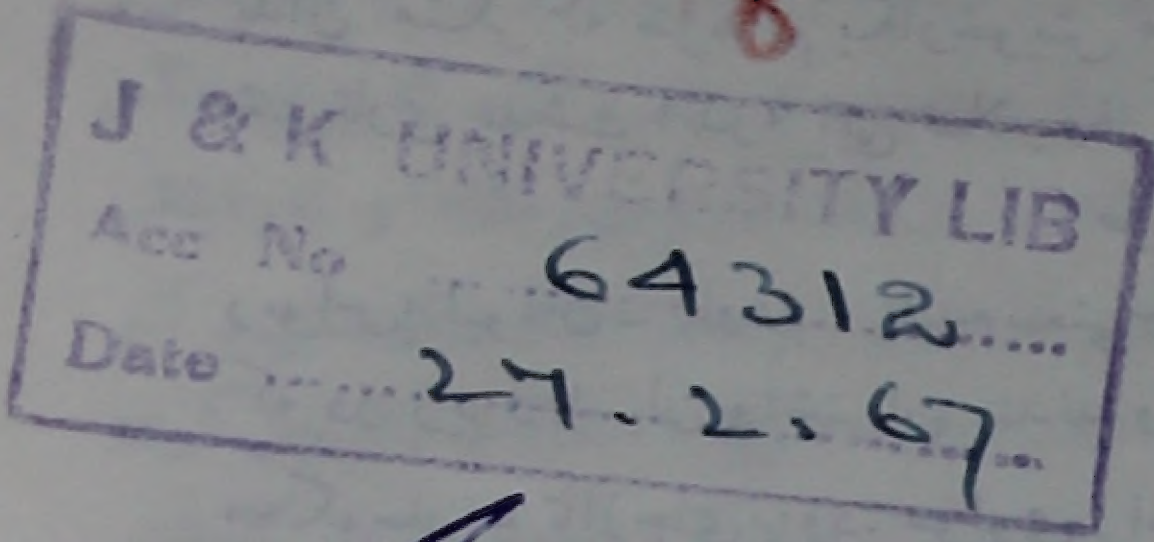 J & K UNIVERSITY LIB
Acc No ..... 64312.....
Date ......27.2.67.....